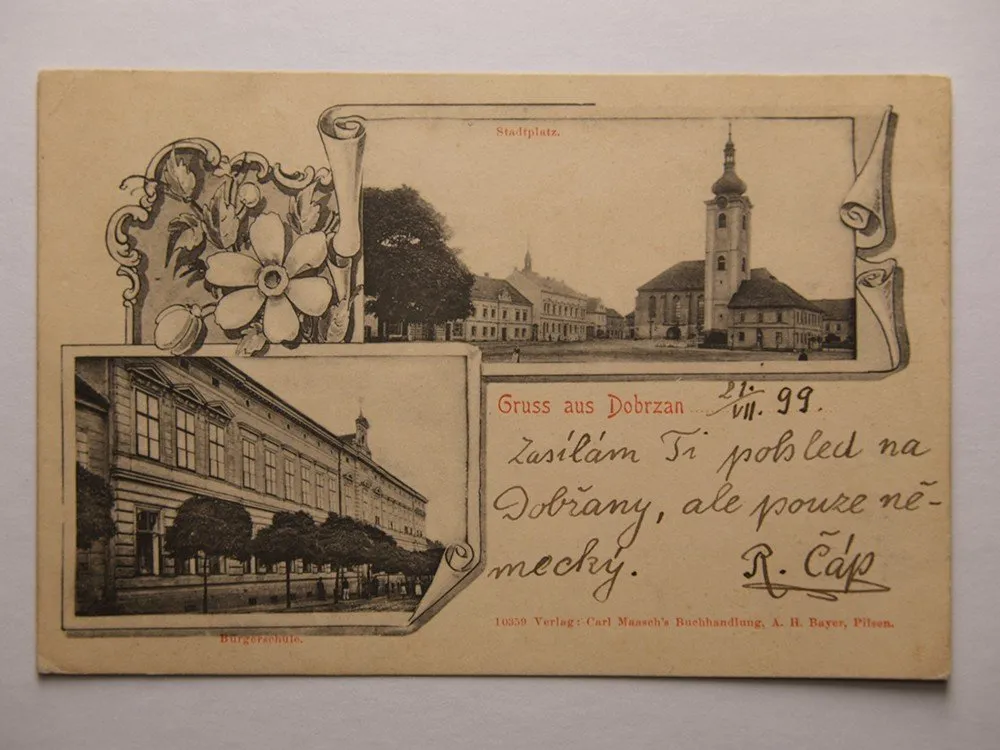 Stadtplatz.
Gruss aus Dobrzan 21./VII. 99.
Zasílám Ti pohled na
Dobřany, ale pouze ně-
mecký. R. Čáp
10359 Verlag: Carl Maasch's Buchhandlung, A. H. Bayer, Pilsen.
Bürgerschule.